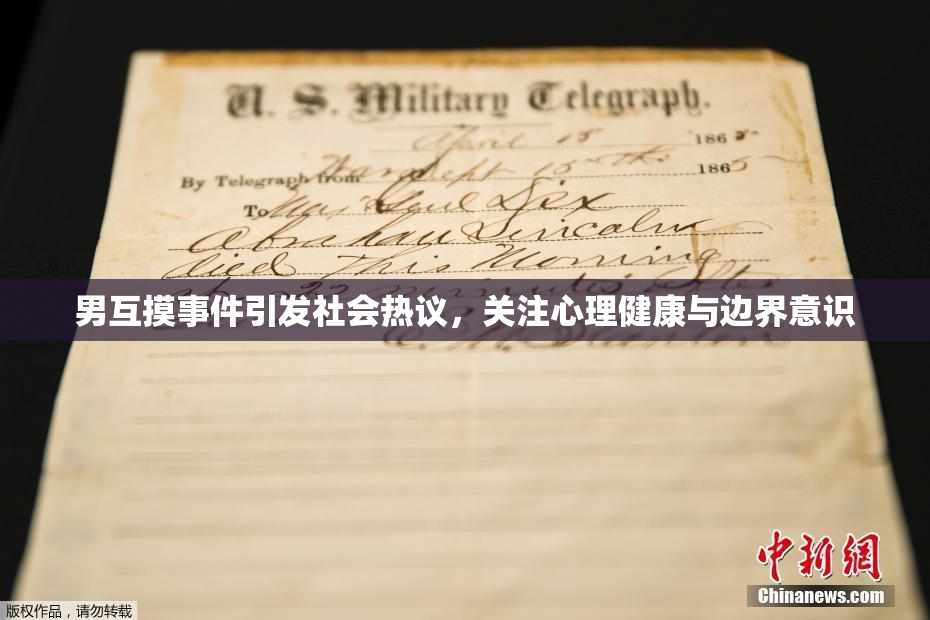 U. S. Military Telegraph.
April 15 1865
By Telegraph from War Dept 15th 1865
To Maj Genl Dix
Abraham Lincoln
died This Morning
22 minutes after
男互摸事件引发社会热议，关注心理健康与边界意识
E. M. Stanton
中新网
Chinanews.com
版权作品，请勿转载